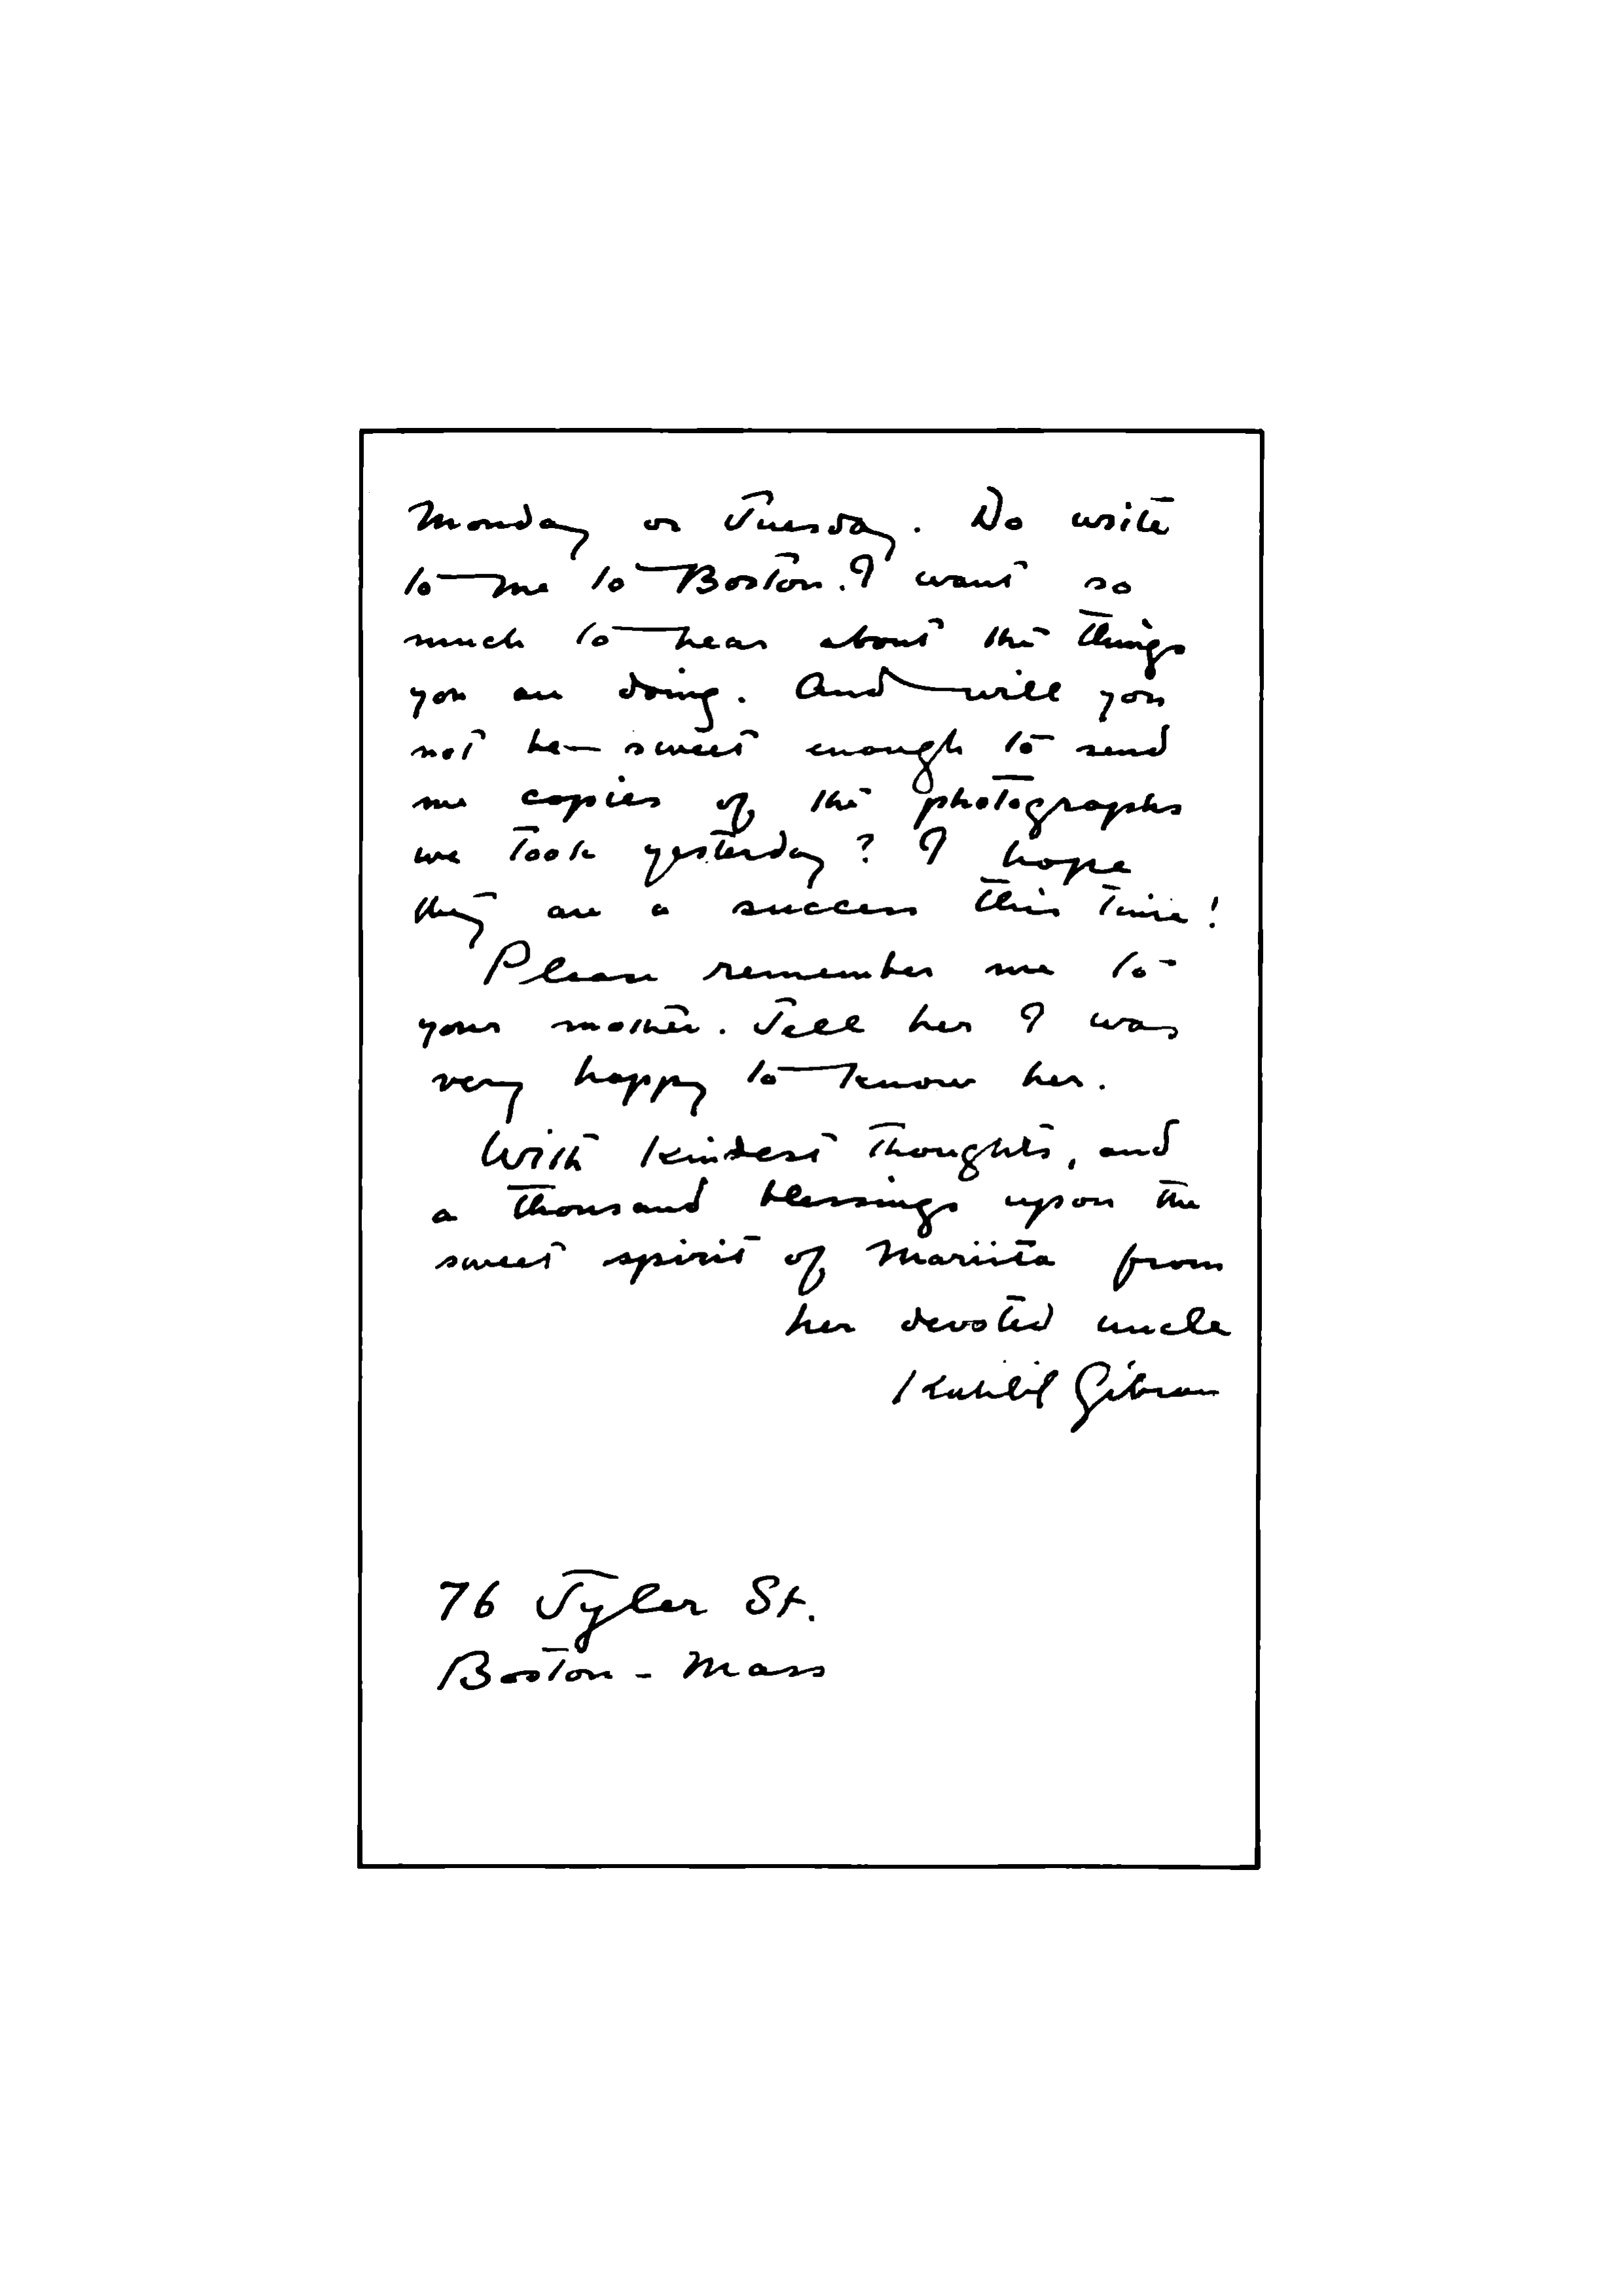 Monday or Tuesday. Do write
to me to Boston. I want so
much to hear about the things
you are doing. And will you
not be sweet enough to send
me copies of the photographs
we took yesterday? I hope
they are a success this time!
Please remember me to
your mother. Tell her I was
very happy to know her.
With kindest thoughts, and
a thousand blessings upon the
sweet spirit of Mariita from
her devoted uncle
Kahlil Gibran
76 Tyler St.
Boston - Mass